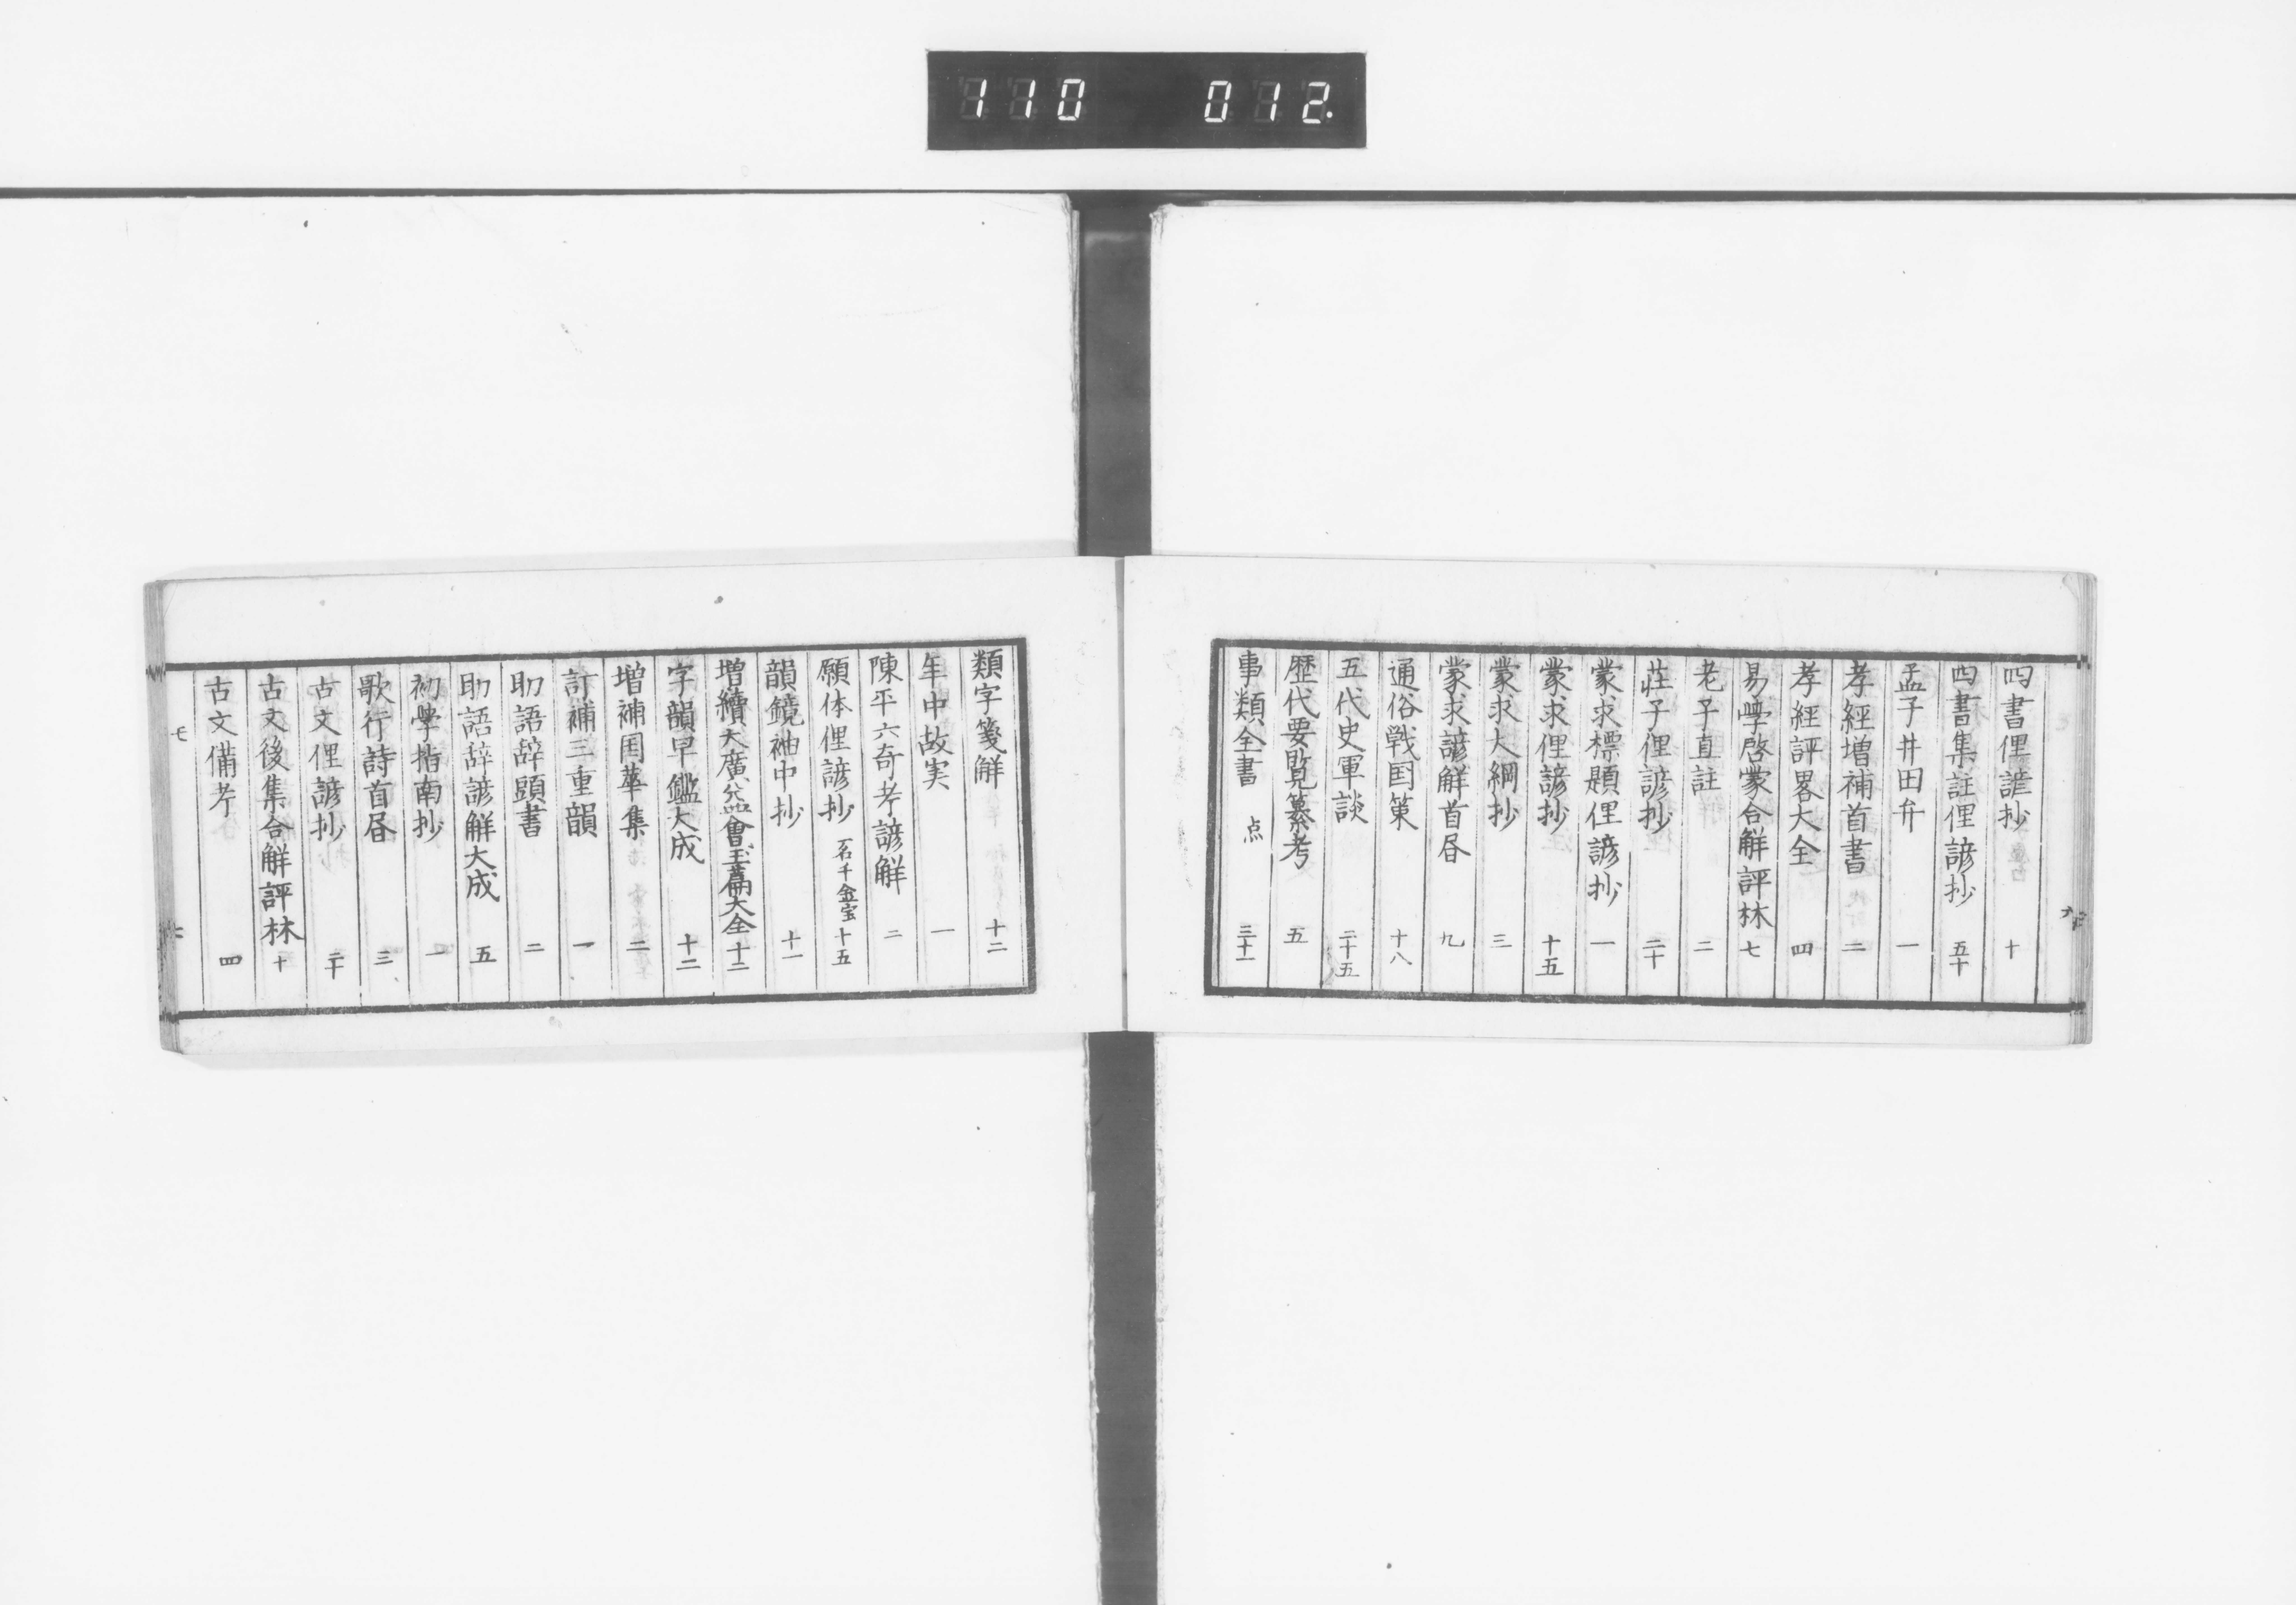 110 012.
四書俚諺抄 十
四書集註俚諺抄 五十
孟子井田弁 一
孝經増補首書 二
孝經評畧大全 四
易學啓蒙合觧評林 七
老子直註 二
莊子俚諺抄 二十
蒙求標題俚諺抄 一
蒙求俚諺抄 十五
蒙求大綱抄 三
蒙求諺觧首書 九
通俗戦国策 十八
五代史軍談 二十五
歴代要覧纂考 五
事類全書 点 三十一
類字箋觧 十二
年中故実 一
陳平六奇考諺觧 二
願体俚諺抄 一名千金宝 十五
韻鏡袖中抄 十一
増續大廣益會玉篇大全 十二
字韻早鑑大成 十二
増補国華集 二
訂補三重韻 一
助語辞顕書 二
助語辞諺觧大成 五
初學指南抄 一
歌行詩首書 三
古文俚諺抄 二十
古文後集合觧評林 十
古文備考 四
七